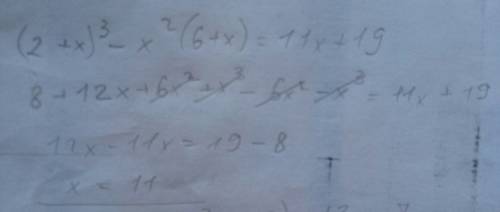 (2+x)³ - x²(6+x) = 11x + 19
8 + 12x + 6x² + x³ - 6x² - x³ = 11x + 19
12x - 11x = 19 - 8
x = 11